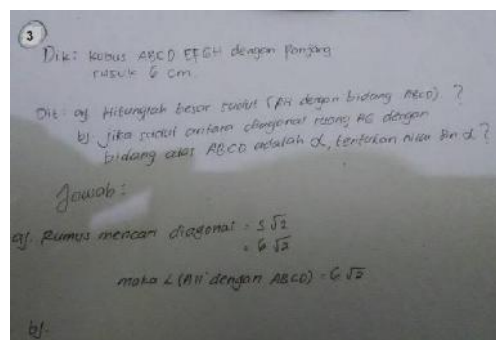 3
Dik: kubus ABCD EFGH dengan panjang
rusuk 6 cm.
Dit: a). Hitunglah besar sudut (AH dengan bidang ABCD) ?
b). jika sudut antara diagonal ruang AG dengan
bidang alas ABCD adalah α, tentukan nilai sin α ?
Jawab:
a). Rumus mencari diagonal = s √2
= 6 √2
maka ∠ (AH dengan ABCD) = 6 √2
b).